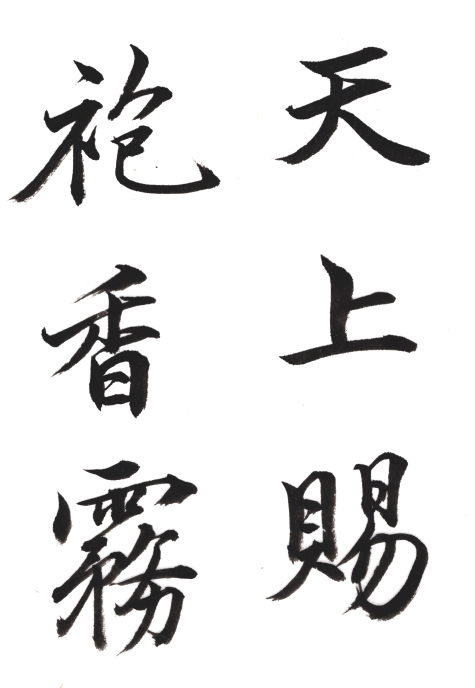 天上賜
袍香霧